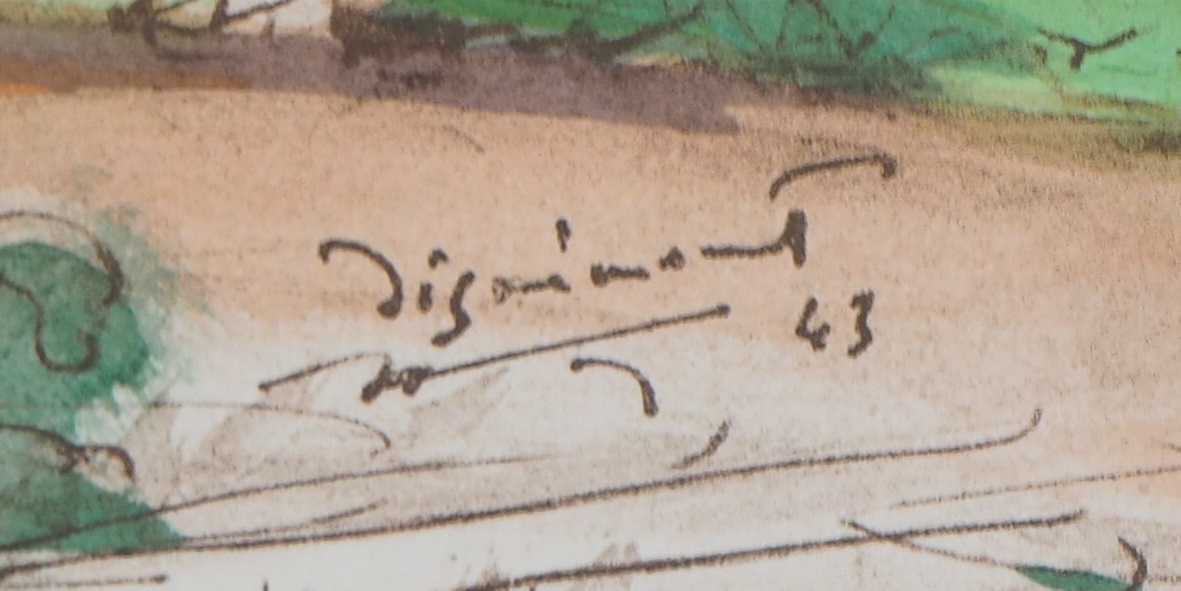 Dignimont
43